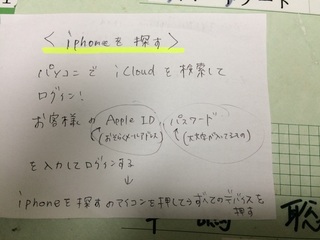 <iphoneを探す>
パソコンで iCloudを検索して
ログイン!
お客様の Apple ID、パスワード
(おそらくメールアドレス) (大文字が入ってるもの)
を入力してログインする
↓
iphoneを探すのアイコンを押してからすべてのデバイスを
押す
聡